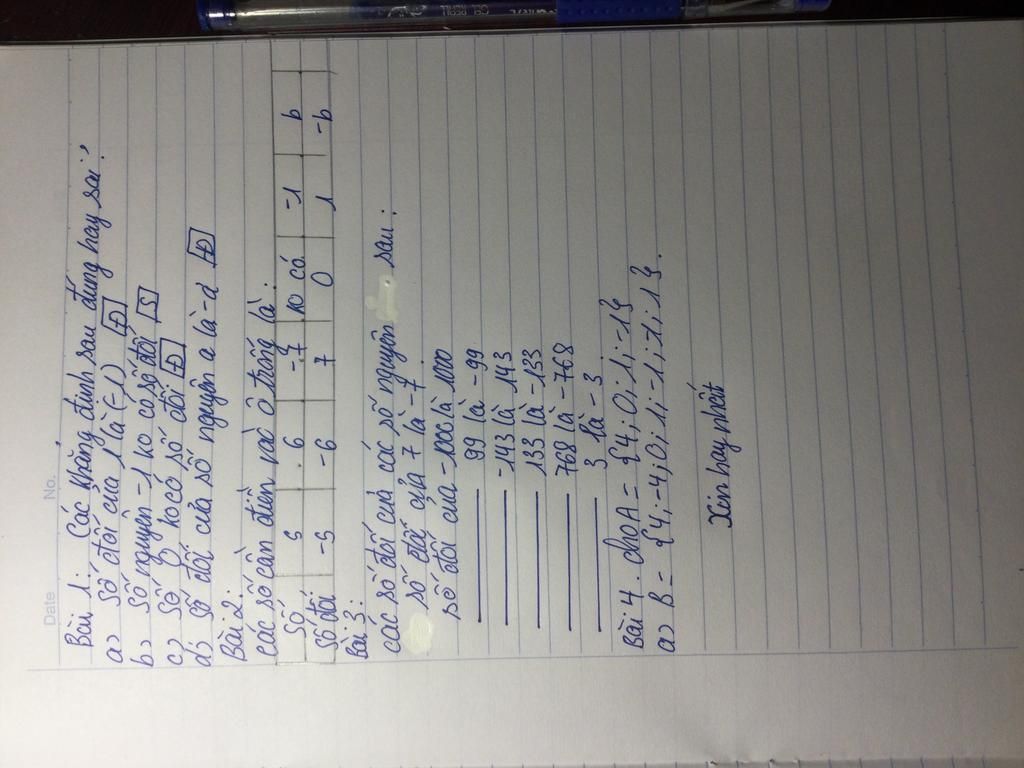 Date No.
Bài 1: Các khẳng định sau đúng hay sai?
a) Số đối của 1 là (-1) Đ
b) Số nguyên -1 ko có số đối S
c) Số 0 ko có số đối Đ
d) Số đối của số nguyên a là -a Đ
Bài 2:
Các số cần điền vào ô trống là:
Số 5 6 -7 ko có -1 b
Số đối -5 -6 7 0 1 -b
Bài 3:
Các số đối của các số nguyên sau:
số đối của 7 là -7
số đối của -1000 là 1000
99 là -99
-143 là 143
133 là -133
768 là -768
3 là -3
Bài 4. cho A = {4; 0; 1; -1}
a) B = {4; -4; 0; 1; -1; 1; 1}.
Xin hay nhất